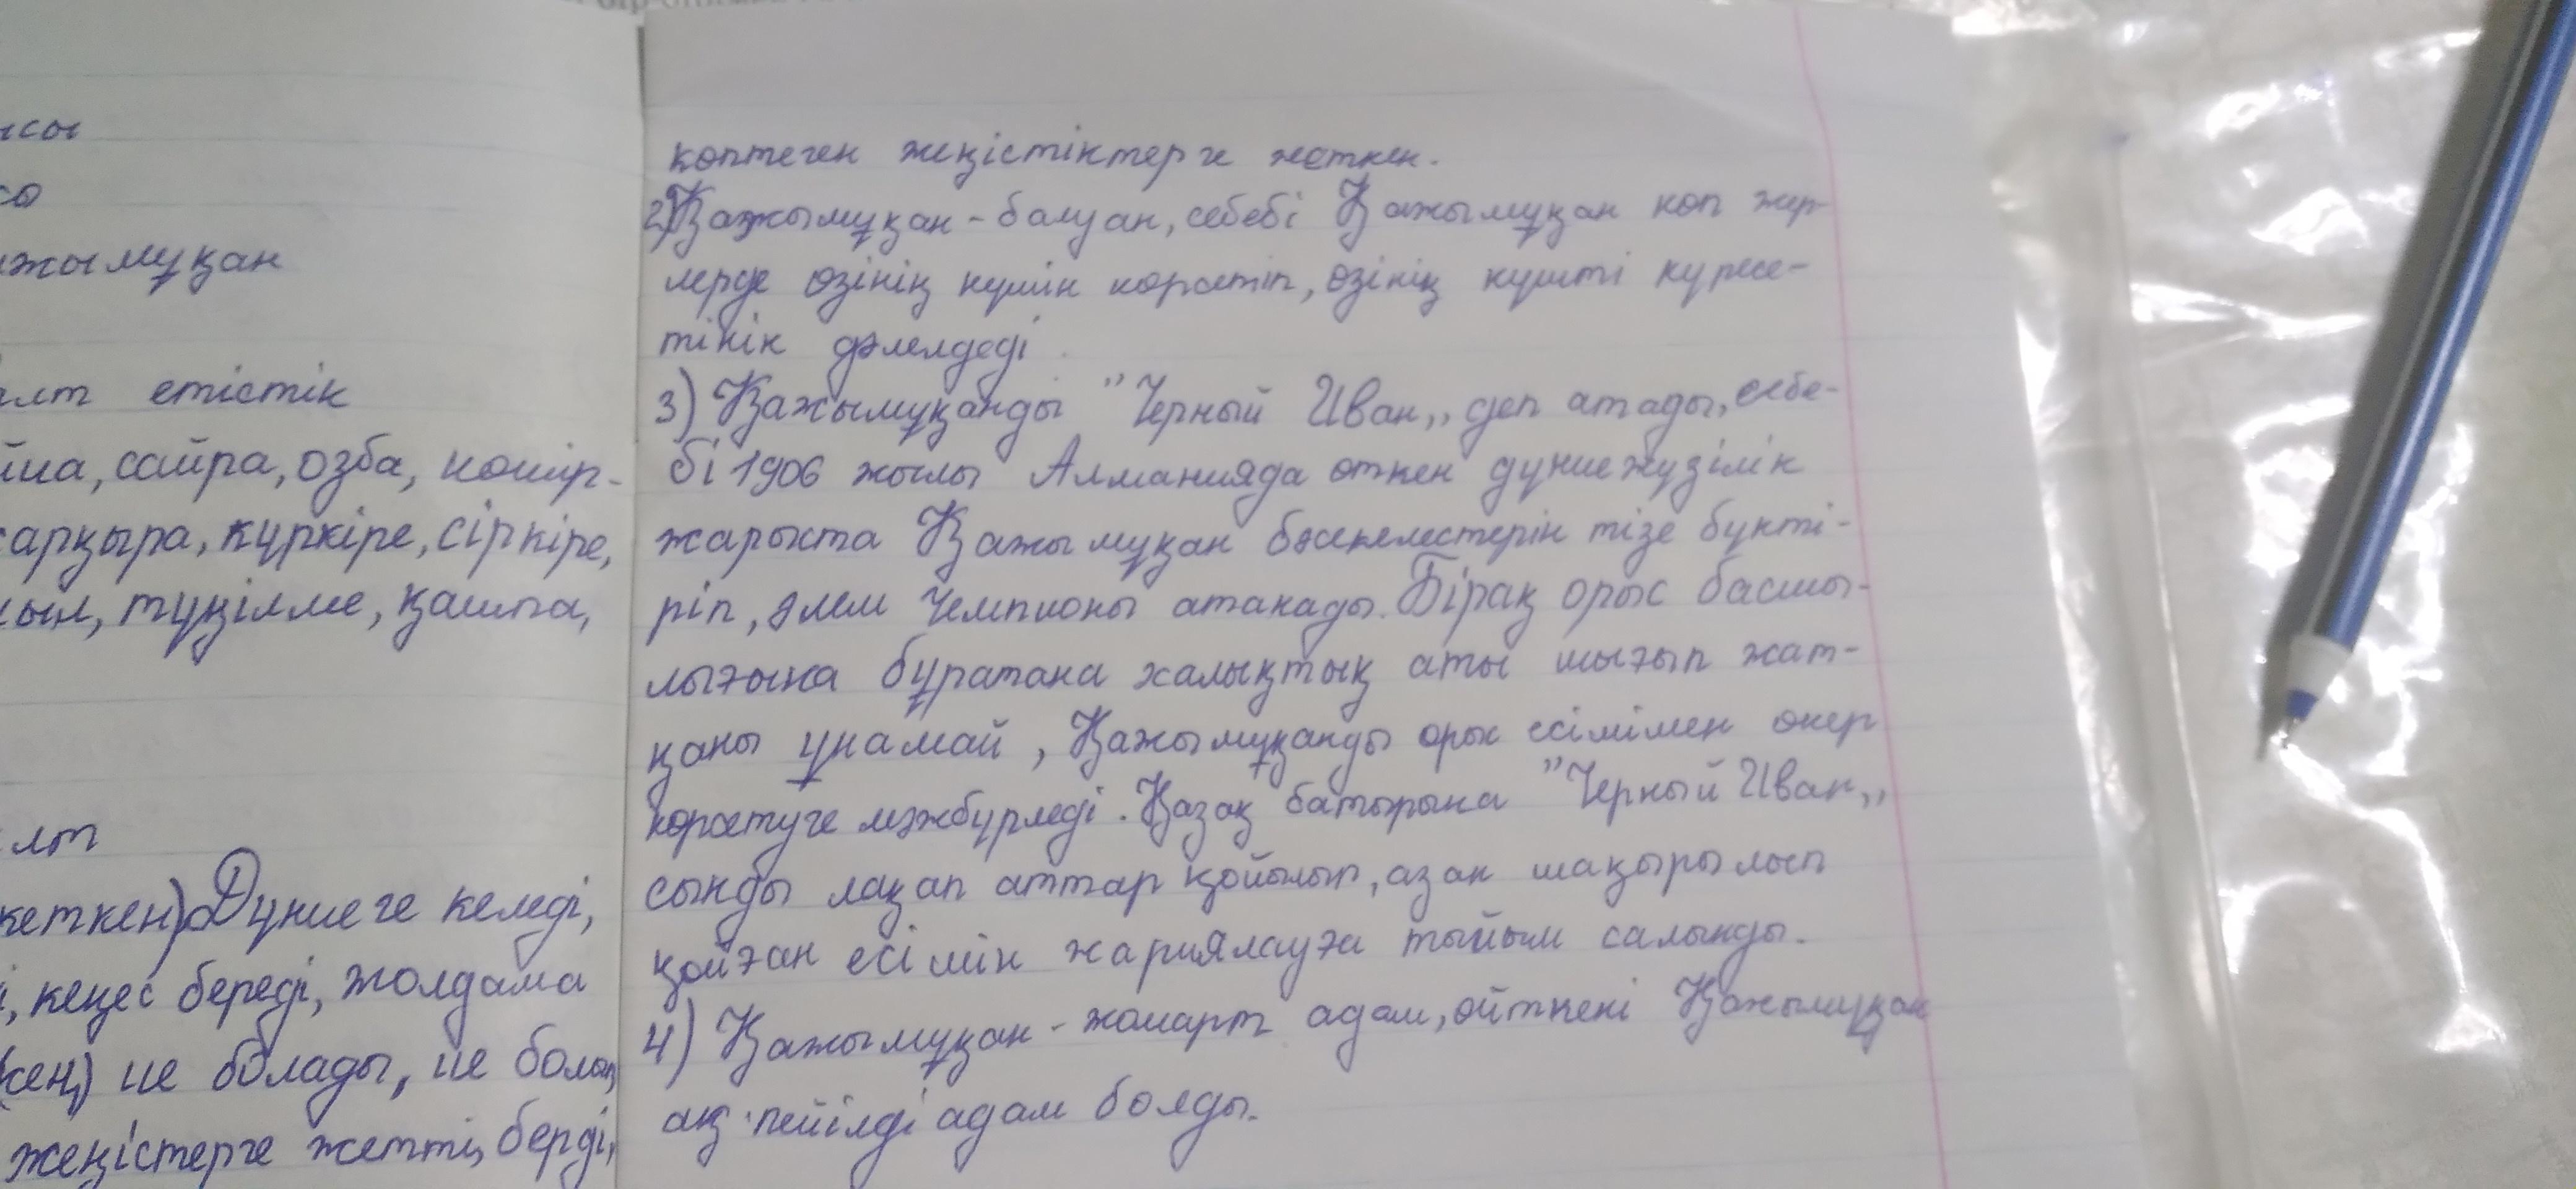 ысы
жымұқан
етістік
йла, сайра, озба, көшір-
сарқыра, күркіре, сіркіре,
түңілме, қашпа,
лт
кеткен) Дүниеге келеді,
кеңес береді, жолдама
ие болады, ие болып,
жеңістерге жетті, берді,
көптеген жеңістіктерге жеткен.
2) Қажымұқан - балуан, себебі Қажымұқан көп жер-
лерде өзінің күшін көрсетіп, өзінің күшті күресе-
тінін дәлелдеді.
3) Қажымұқанды "Черный Иван" деп атады, себе-
бі 1906 жылы Алманияда өткен дүниежүзілік
жарыста Қажымұқан бәсекелестерін тізе бүкті-
ріп, әлем Чемпионы атанады. Бірақ орыс басшы-
лығына бұратана халықтың аты шығып жат-
қаны ұнамай, Қажымұқанды орыс есімімен өнер
көрсетуге мәжбүрледі. Қазақ батырына "Черный Иван"
сынды лақап аттар қойылып, азан шақырылып
қойған есімін жариялауға тыйым салынды.
4) Қажымұқан - жомарт адам, өйткені Қажымұқан
ақ пейілді адам болды.